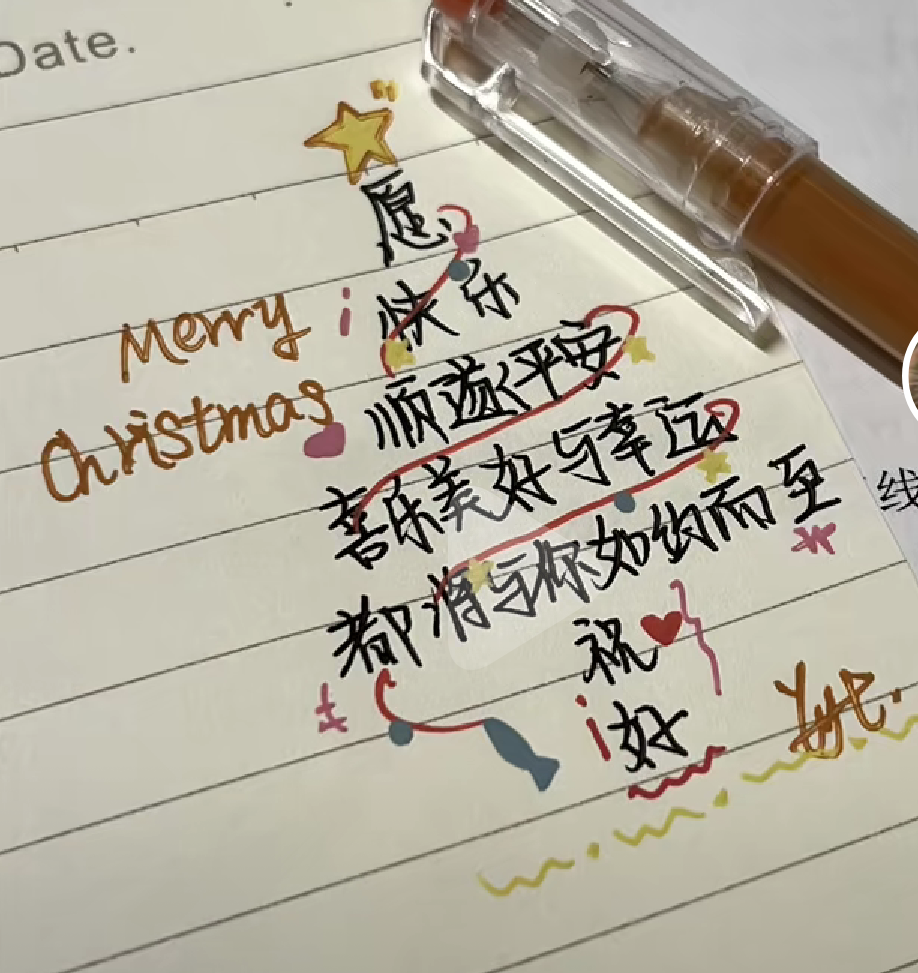 Date.
愿
快乐
Merry
顺遂平安
Christmas
喜乐美好与幸运
都将与你如约而至
祝
好
线